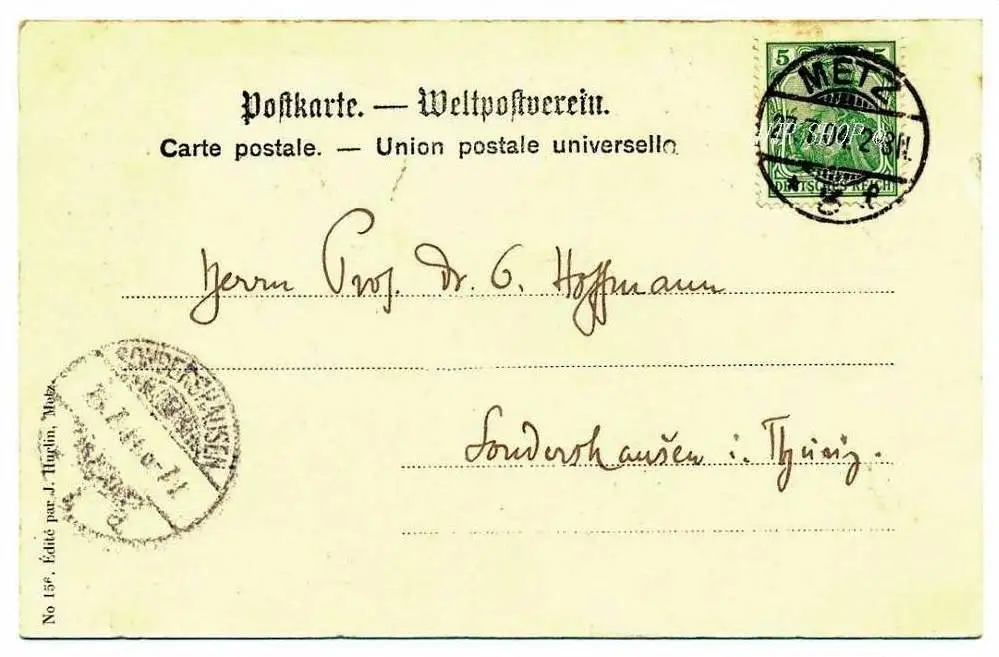 Postkarte. — Weltpostverein.
Carte postale. — Union postale universelle
5 5
DEUTSCHES REICH
METZ
7.04. 2-3N.
Herrn Prof. Dr. G. Hoffmann
Sondershausen i. Thüring.
SONDERSHAUSEN
No 156. Édité par J. Hurlin, Metz.